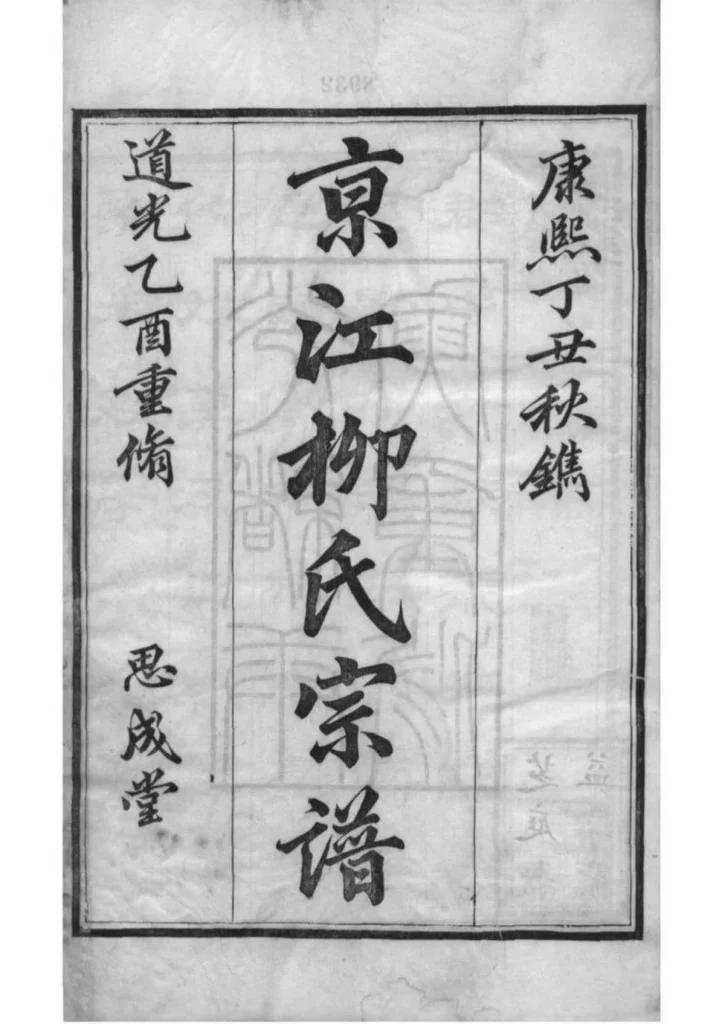 康熙丁丑秋鐫
京江柳氏宗譜
道光乙酉重脩
思成堂